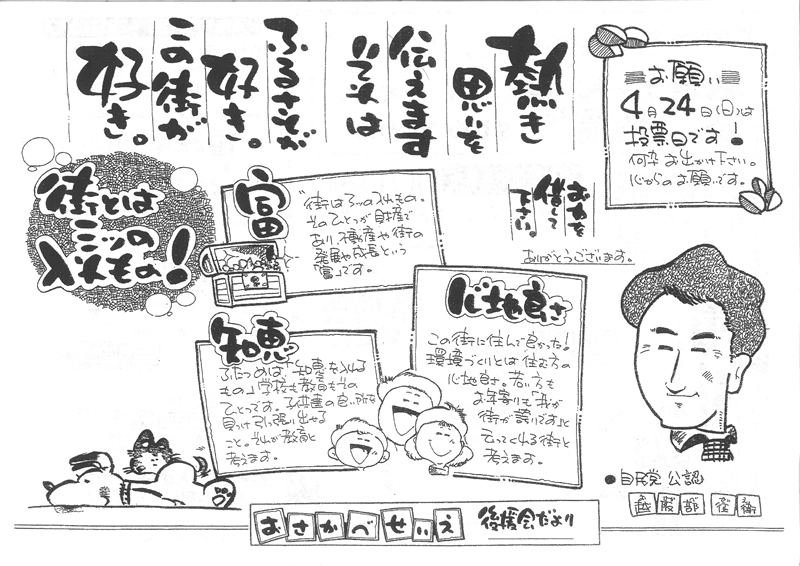 熱き
思いを
伝えます
それは
ふるさとが
好き。
この街が
好き。
お願い
4月24日(日)は
投票日です!
何卒お出かけ下さい。
心からのお願いです。
お力を
借して
下さい。
ありがとうございます。
街とは
三ッの
入れもの!
富
“街は三ッの入れもの。
そのひとつが財産で
あり、不動産や街の
発展や成長という
「富」です。
知恵
ふたつめは、“知恵を入れる
もの。」学校も教育もその
ひとつです。子供達の良い所を
見つけ引っ張り出せる
こと。それが教育と
考えます。
心地良さ
この街に住んで良かった!
環境づくりとは住む方の
心地良さ。若い方も
お年寄りも「我が
街が誇りです」と
言ってくれる街と
考えます。
●自民党公認
おさかべせいえ 後援会だより